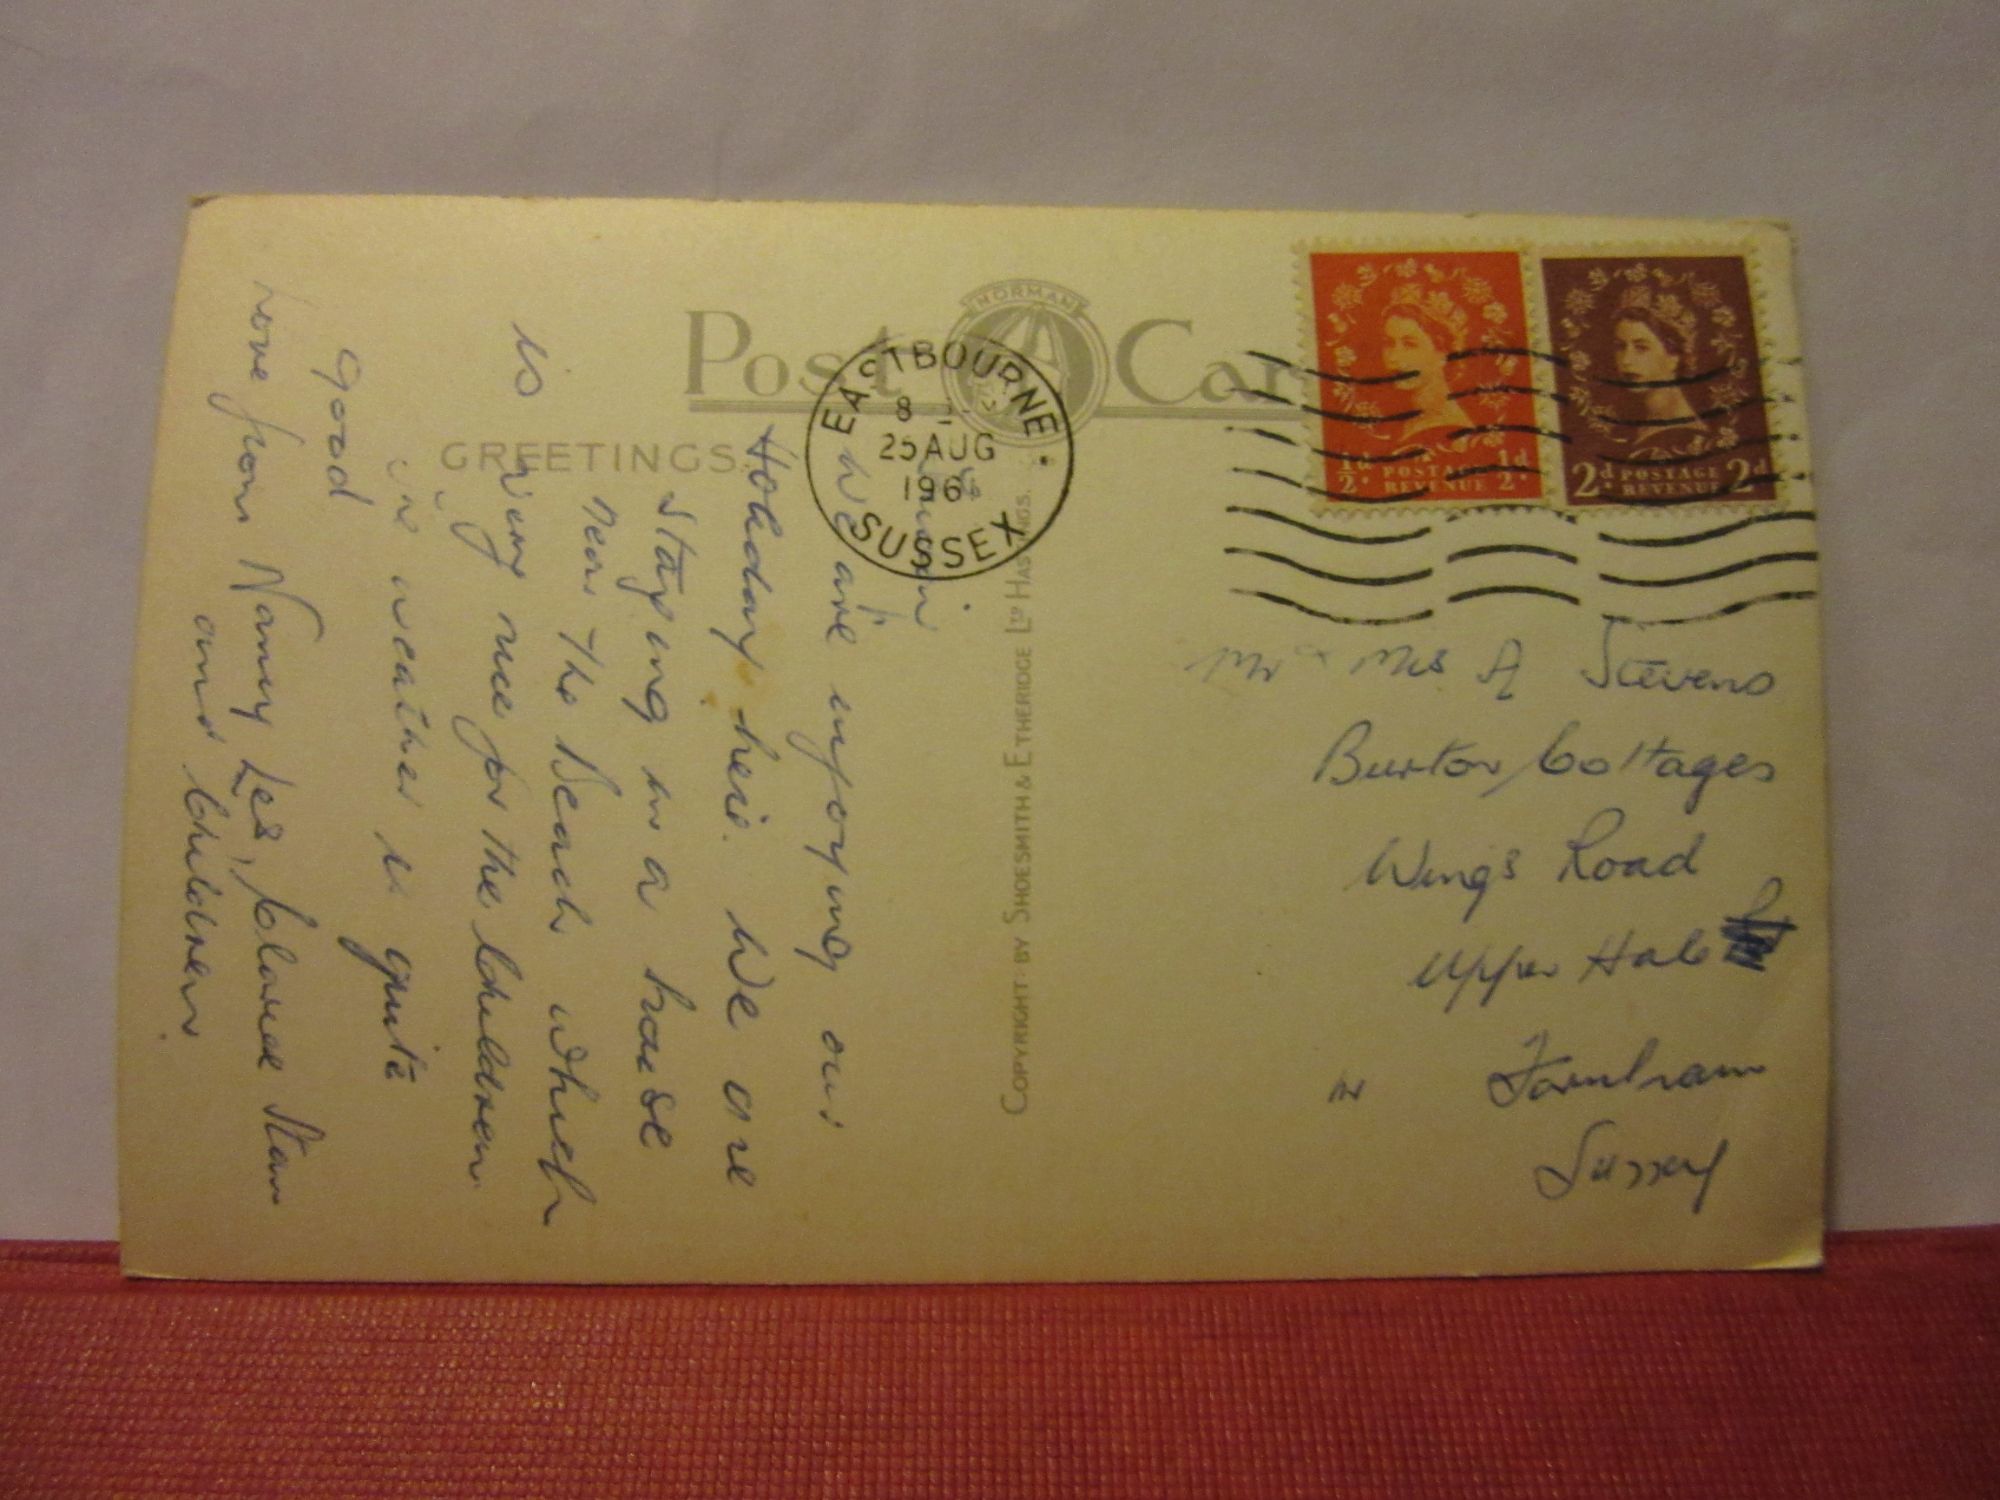 Post Car
NORMAN
GREETINGS
EASTBOURNE
8
25 AUG
196
SUSSEX
½d POSTAGE ½d
REVENUE
2d POSTAGE 2d
REVENUE
COPYRIGHT BY SHOESMITH & ETHERIDGE LTD HASTINGS.
We are enjoying our
Holiday here. We are
staying in a house
near the Beach which
is very nice for the Children
weather is quite
good
love from Nanny Les, Stan
and Children
Mr & Mrs A Stevens
Burton Cottages
Wings Road
Upper Hale
nr Farnham
Surrey